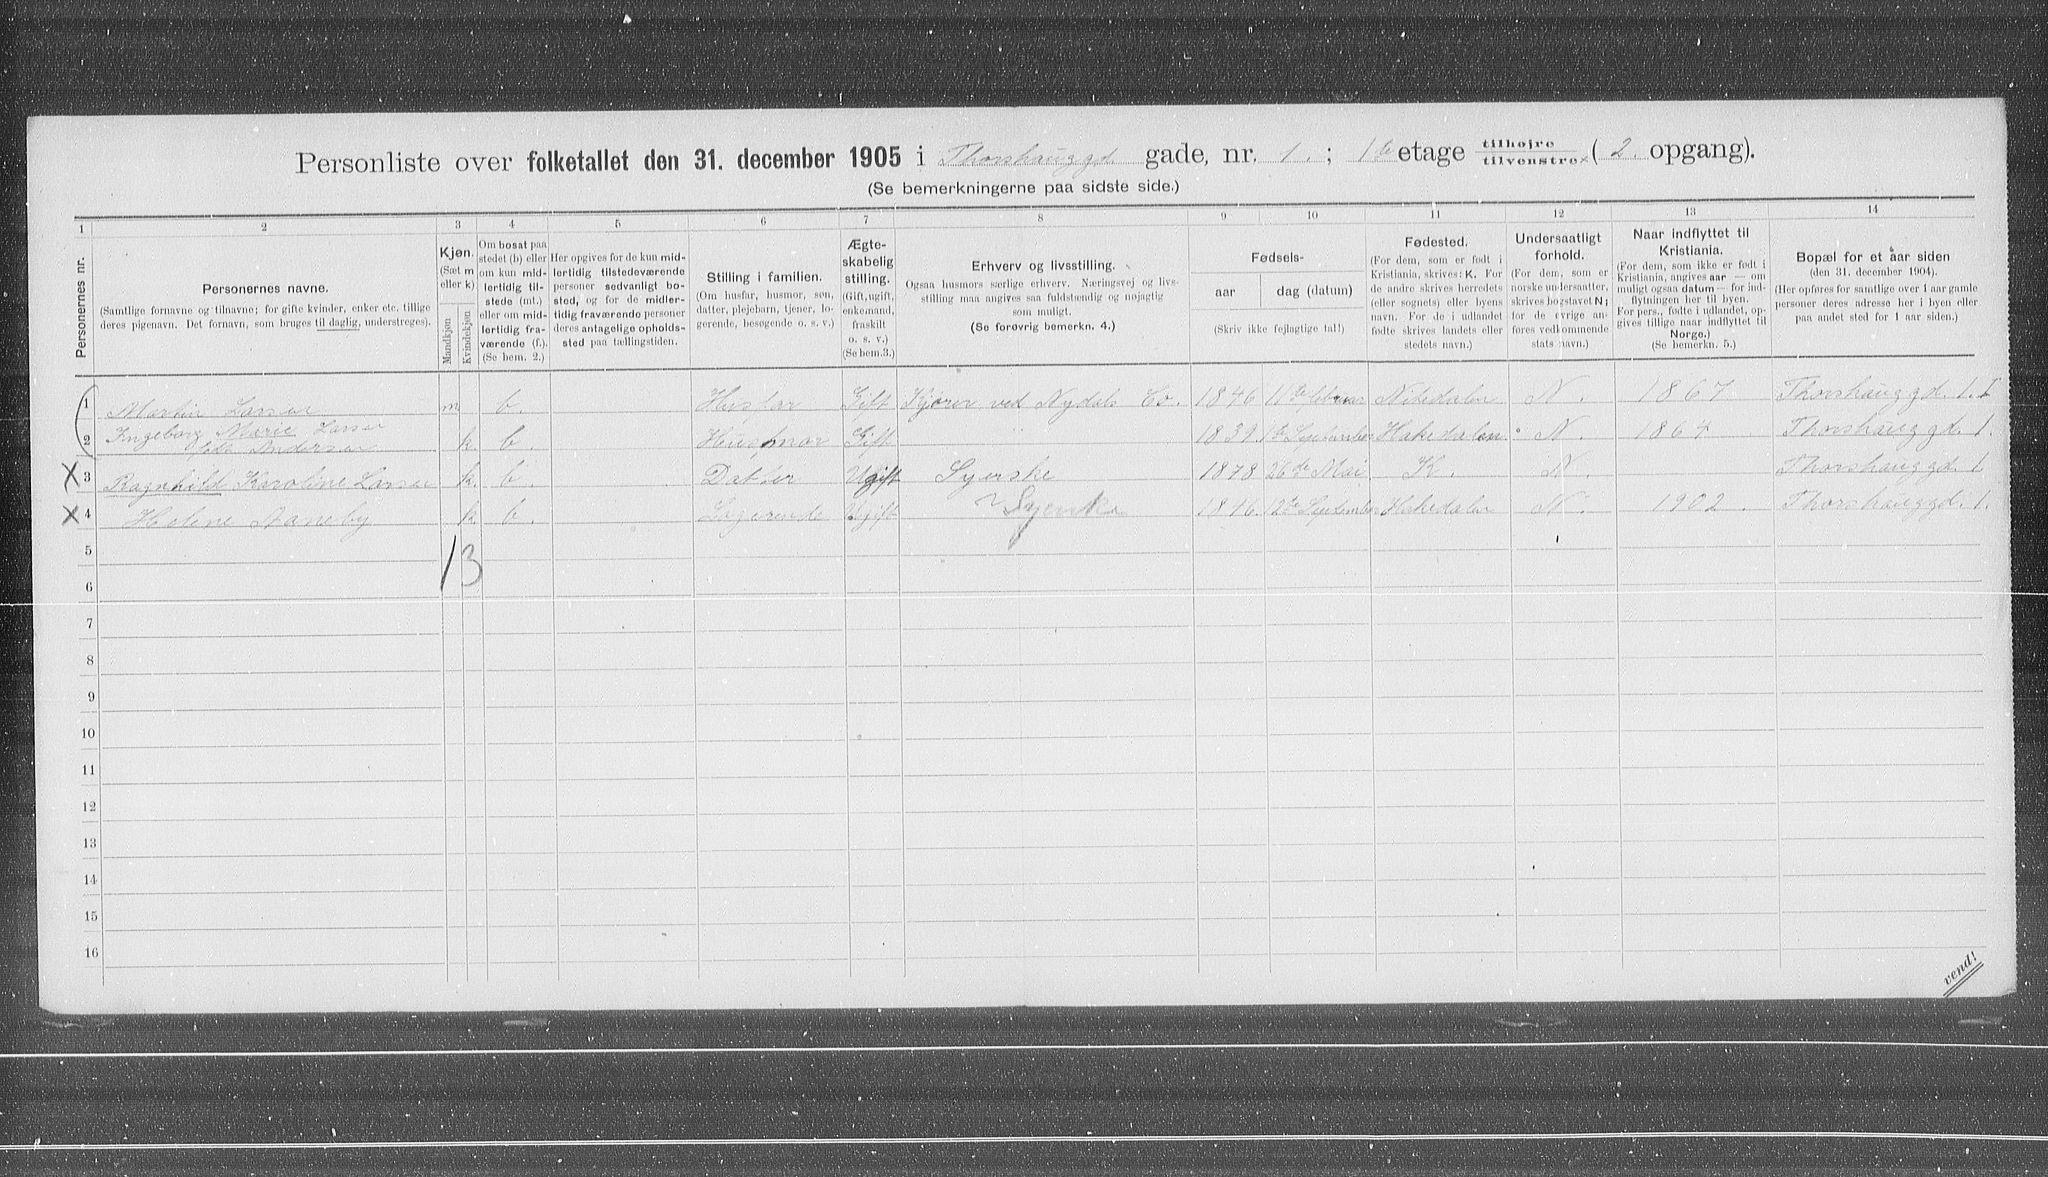 Personliste over folketallet den 31. december 1905 i Thorshauggd gade, nr. 1. ; 1ste etage tilhøjre/tilvenstre × ( 2. opgang).
(Se bemerkningerne paa sidste side.)
1 2 3 4 5 6 7 8 9 10 11 12 13 14
Personernes nr.
Personernes navne.
(Samtlige fornavne og tilnavne; for gifte kvinder, enker etc. tillige
deres pigenavn. Det fornavn, som bruges til daglig, understreges).
Kjøn.
(Sæt m
eller k)
Mandkjøn
Kvindekjøn
Om bosat paa
stedet (b) eller
om kun mid-
lertidig til-
stede (mt.)
eller om mid-
lertidig fra-
værende (f.).
(Se bem. 2.)
Her opgives for de kun mid-
lertidig tilstedeværende
personer sedvanlig bo-
sted, og for de midler-
tidig fraværende personer
deres antagelige opholds-
sted paa tællingstiden.
Stilling i familien.
(Om husfar, husmor, søn,
datter, plejebarn, tjener, lo-
gerende, besøgende o. s. v.)
Ægte-
skabelig
stilling.
(Gift, ugift,
enkemand,
fraskilt
o. s. v.)
(Se bem. 3.)
Erhverv og livsstilling.
Ogsaa husmors særlige erhverv. Næringsvej og livs-
stilling maa angives saa fuldstændig og nøjagtig
som muligt.
(Se forøvrig bemerkn. 4.)
Fødsels-
aar
dag (datum)
(Skriv ikke fejlagtige tal!)
Fødested.
(For dem, som er født i
Kristiania, skrives: K. For
de andre skrives herredets
(eller sognets) eller byens
navn. For de i udlandet
fødte skrives landets eller
stedets navn.)
Undersaatligt
forhold.
(For dem, som er
norske undersatter,
skrives bogstavet N;
for de øvrige an-
føres vedkommende
stats navn.)
Naar indflyttet til
Kristiania.
(For dem, som ikke er født i
Kristiania, angives aar — om
muligt ogsaa datum — for ind-
flytningen her til byen.
For pers., født i udlandet, op-
gives tillige naar indflyttet til
Norge.)
(Se bemerkn. 5.)
Bopæl for et aar siden
(den 31. december 1904).
(Her opføres for samtlige over 1 aar gamle
personer deres adresse her i byen eller
paa andet sted for 1 aar siden.)
1 Martin Larsen m b. Husfar Gift Kjører ved Nydals Co. 1846 11te februar Nitedalen N. 1867 Thorshauggd. 1. I
2 Ingeborg Marie Larsen
født Andersen k. b. Husmor Gift 1839 1te September Hakedalen N 1864 Thorshauggd. 1.
X 3 Ragnhild Karoline Larsen k. b. Datter Ugift Syerske 1878 26de Mai K. N. Thorshauggd. 1.
X 4 Helene Aaneby k b. Logerende Ugift Syerske 1846. 12te September Hakedalen N. 1902 Thorshauggd. 1.
5
1 3
6
7
8
9
10
11
12
13
14
15
16
vend!